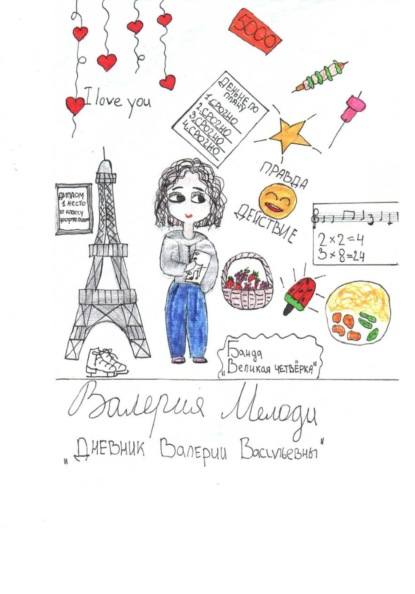 5000
I love you
ДЕНЬНЕ ПО
ПЛАНУ
1. СРОЧНО
2. СРОЧНО
3. СРОЧНО
4. СРОЧНО
ПРАВДА
ДЕЙСТВИЕ
ДИПЛОМ
1 МЕСТО
2×2=4
3×8=24
Банда
„Великая четвёрка"
Валерия Мелоди
„Дневник Валерии Васильевны"